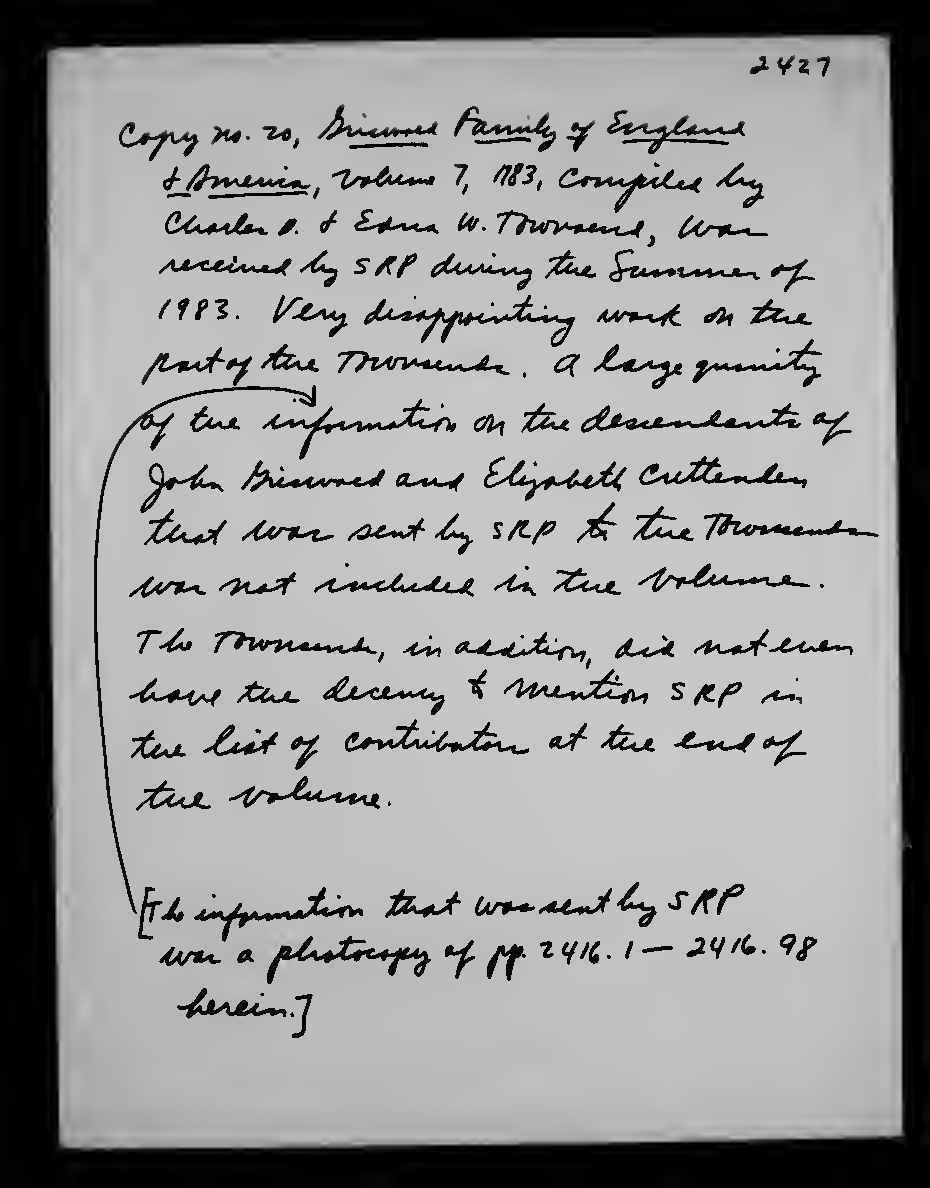 2427
Copy no. 20, Griswold Family of England
& America, Volume 7, 1983, Compiled by
Charles D. & Edna W. Townsend, was
received by SRP during the Summer of
1983. Very disappointing work on the
part of the Townsends. A large qunity
of the information on the descendants of
John Griswold and Elizabeth Cruttenden
that was sent by SRP to the Townsends
was not included in the volume.
The Townsends, in addition, did not even
have the decency to mention SRP in
the list of contributors at the end of
the volume.
[The information that was sent by SRP
was a photocopy of pp. 2416.1 — 2416.98
herein.]